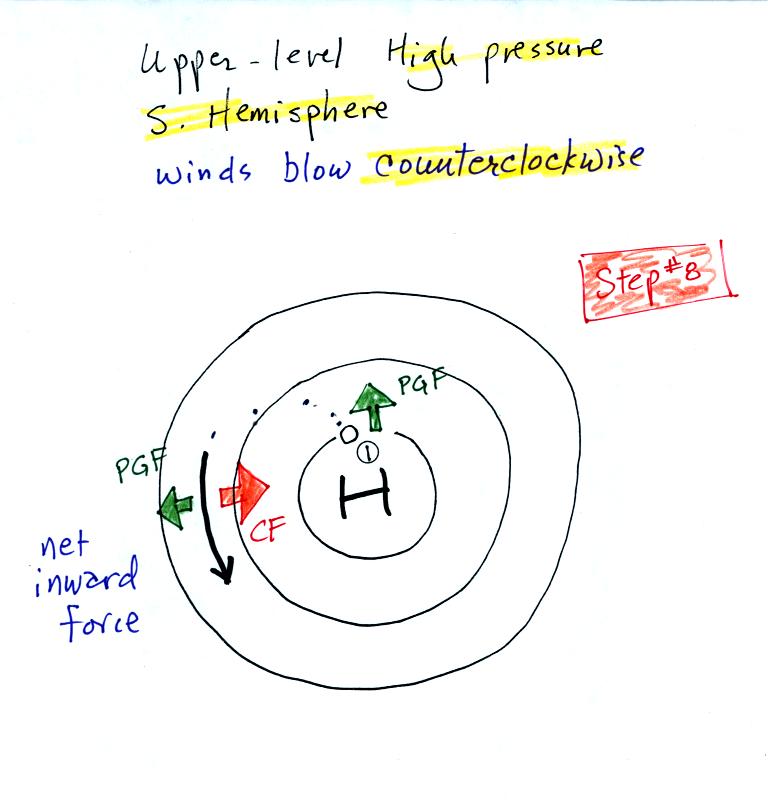 Upper-level High pressure
S. Hemisphere
winds blow counterclockwise
Step #8
PGF
1
PGF
H
CF
net
inward
force